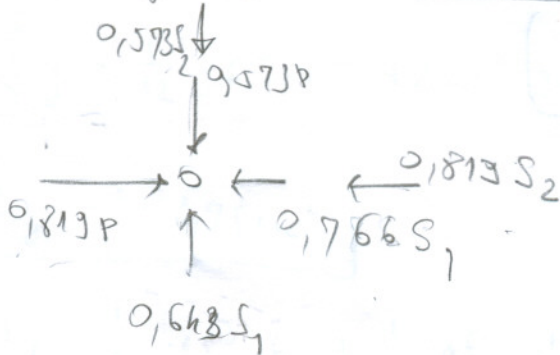 0,573S2
0,573P
0
0,819 S2
0,819P
0,766 S1
0,643 S1